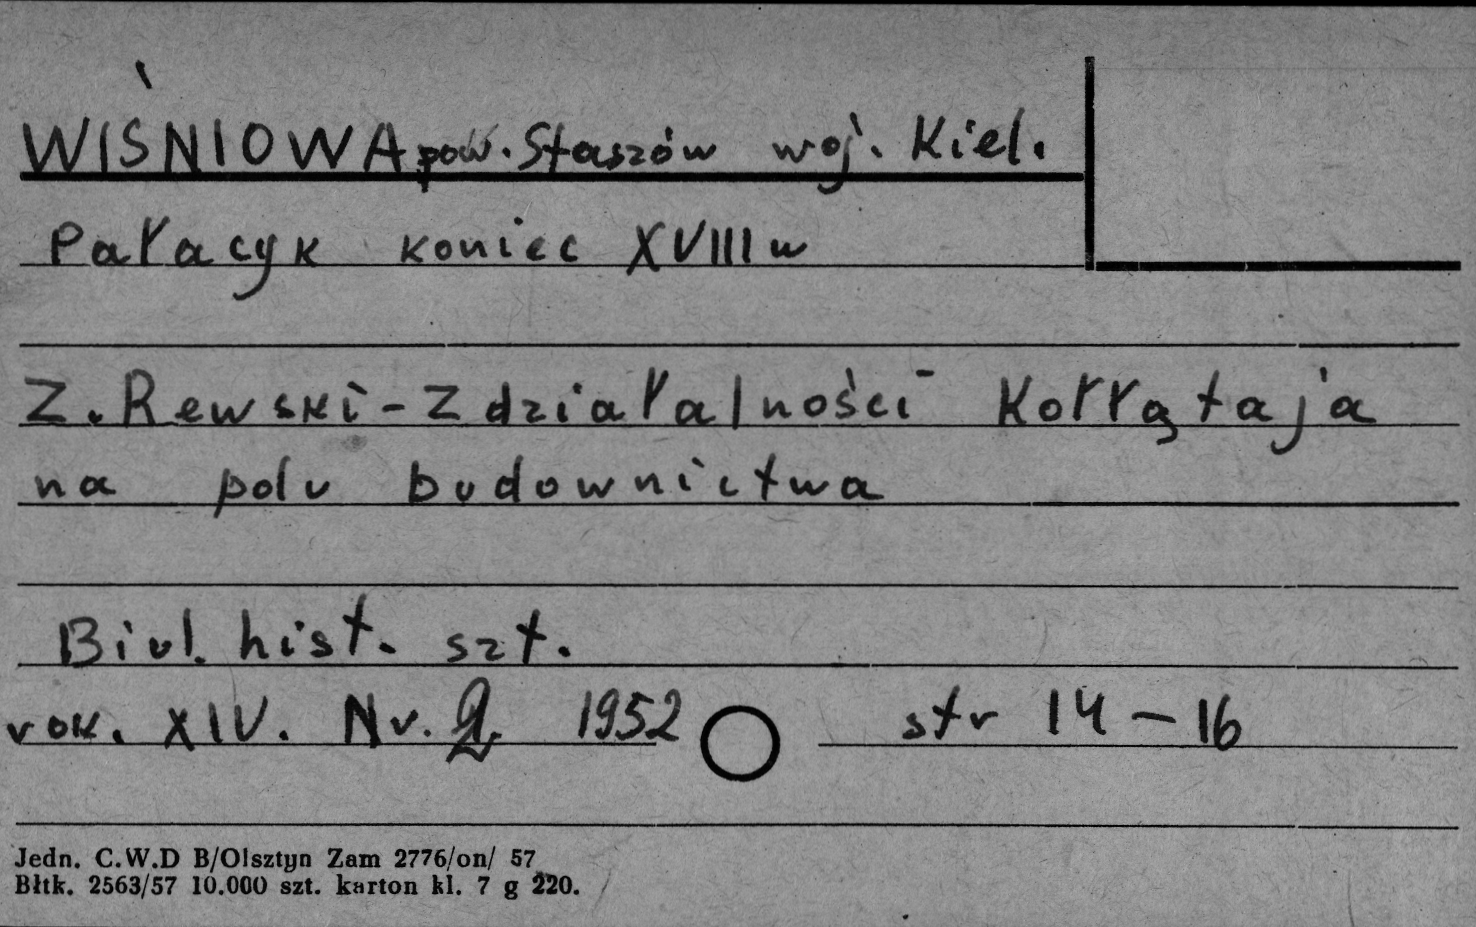 WIŚNIOWA pow. Staszów woj. Kiel.
Pałacyk koniec XVIII w
Z. Rewski - Z działalności Kołłątaja
na polu budownictwa
Biul. hist. szt.
rok. XIV. Nr. 2. 1952 str 14 - 16
Jedn. C.W.D B/Olsztyn Zam 2776/on/ 57
Błtk. 2563/57 10.000 szt. karton kl. 7 g 220.